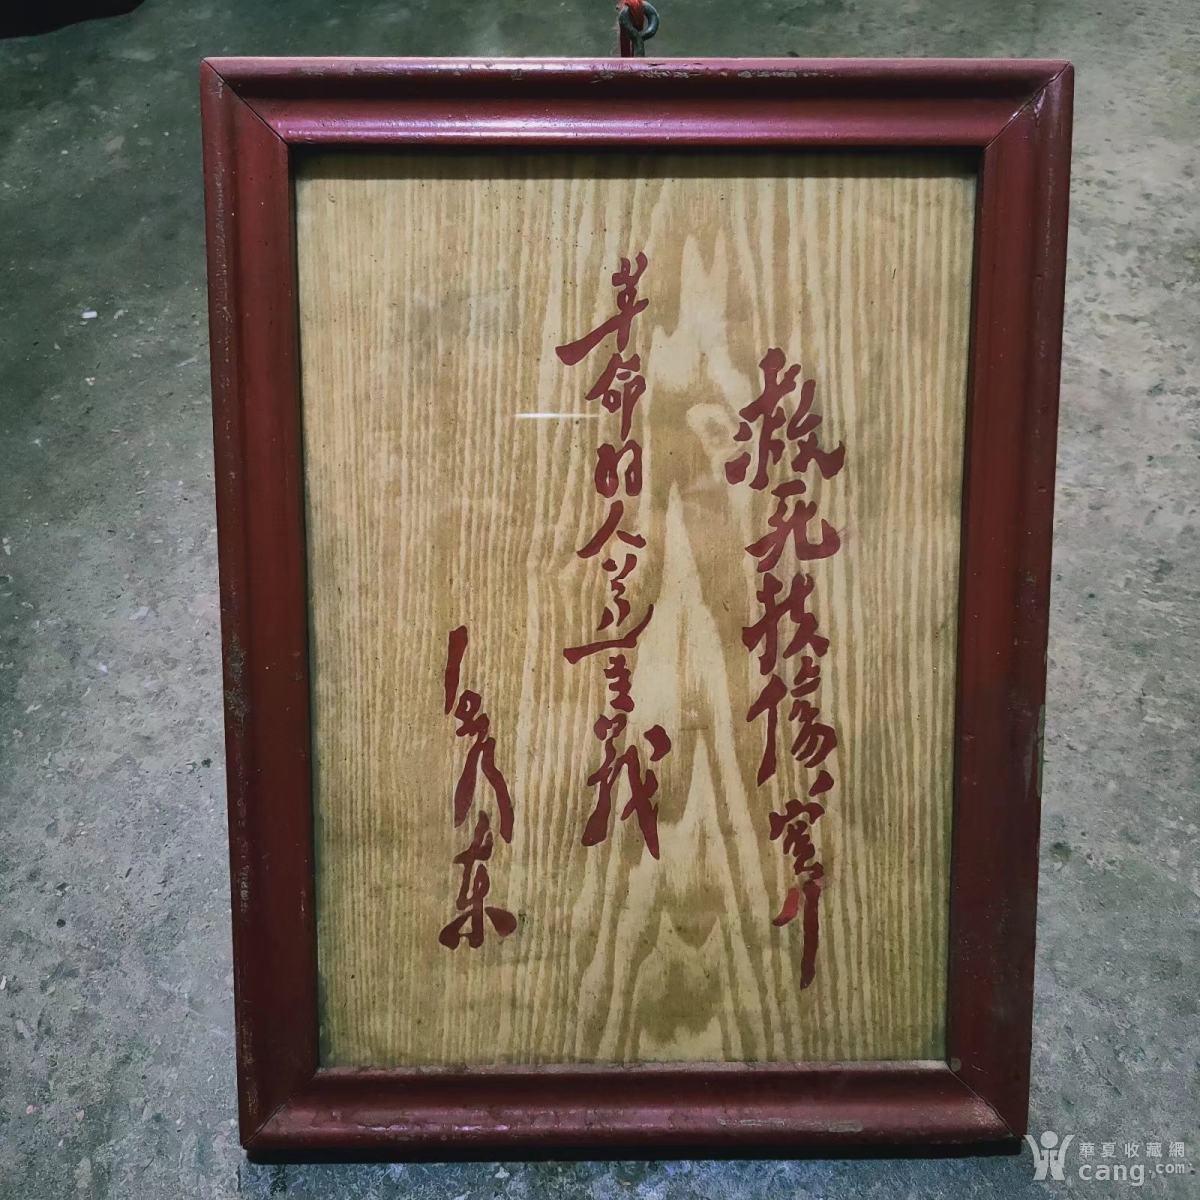 救死扶傷，实行
革命的人道主義
毛澤東
華夏收藏網
cang.com